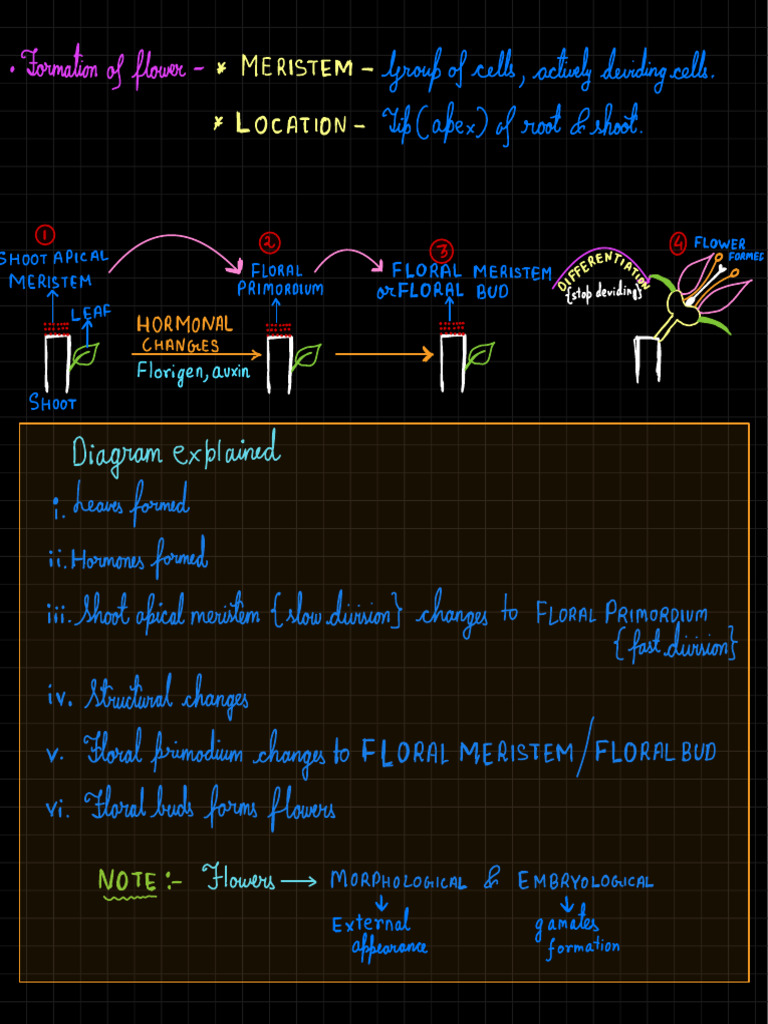 • Formation of flower - * MERISTEM - Group of cells, actively deviding cells.
* LOCATION - Tip (apex) of root & shoot.
①
SHOOT APICAL
MERISTEM
LEAF
SHOOT
HORMONAL
CHANGES
Florigen, auxin
②
FLORAL
PRIMORDIUM
③
FLORAL MERISTEM
or FLORAL BUD
DIFFERENTIATION
{stop deviding}
④ FLOWER
FORMED
Diagram explained
i. Leaves formed
ii. Hormones formed
iii. Shoot apical meristem {slow division} changes to FLORAL PRIMORDIUM
{fast division}
iv. Structural changes
v. Floral primodium changes to FLORAL MERISTEM / FLORAL BUD
vi. Floral buds forms flowers
NOTE :- Flowers → MORPHOLOGICAL & EMBRYOLOGICAL
↓ ↓
External gamates
appearance formation